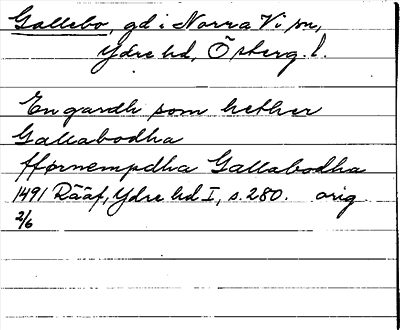 Gallebo, gd i Norra Vi sn,
Ydre hd, Österg. l.
En gardh som hether
Gallabodha
fförnempdha Gallabodha
1491 Rääf, Ydre hd I, s. 280. orig
2/6